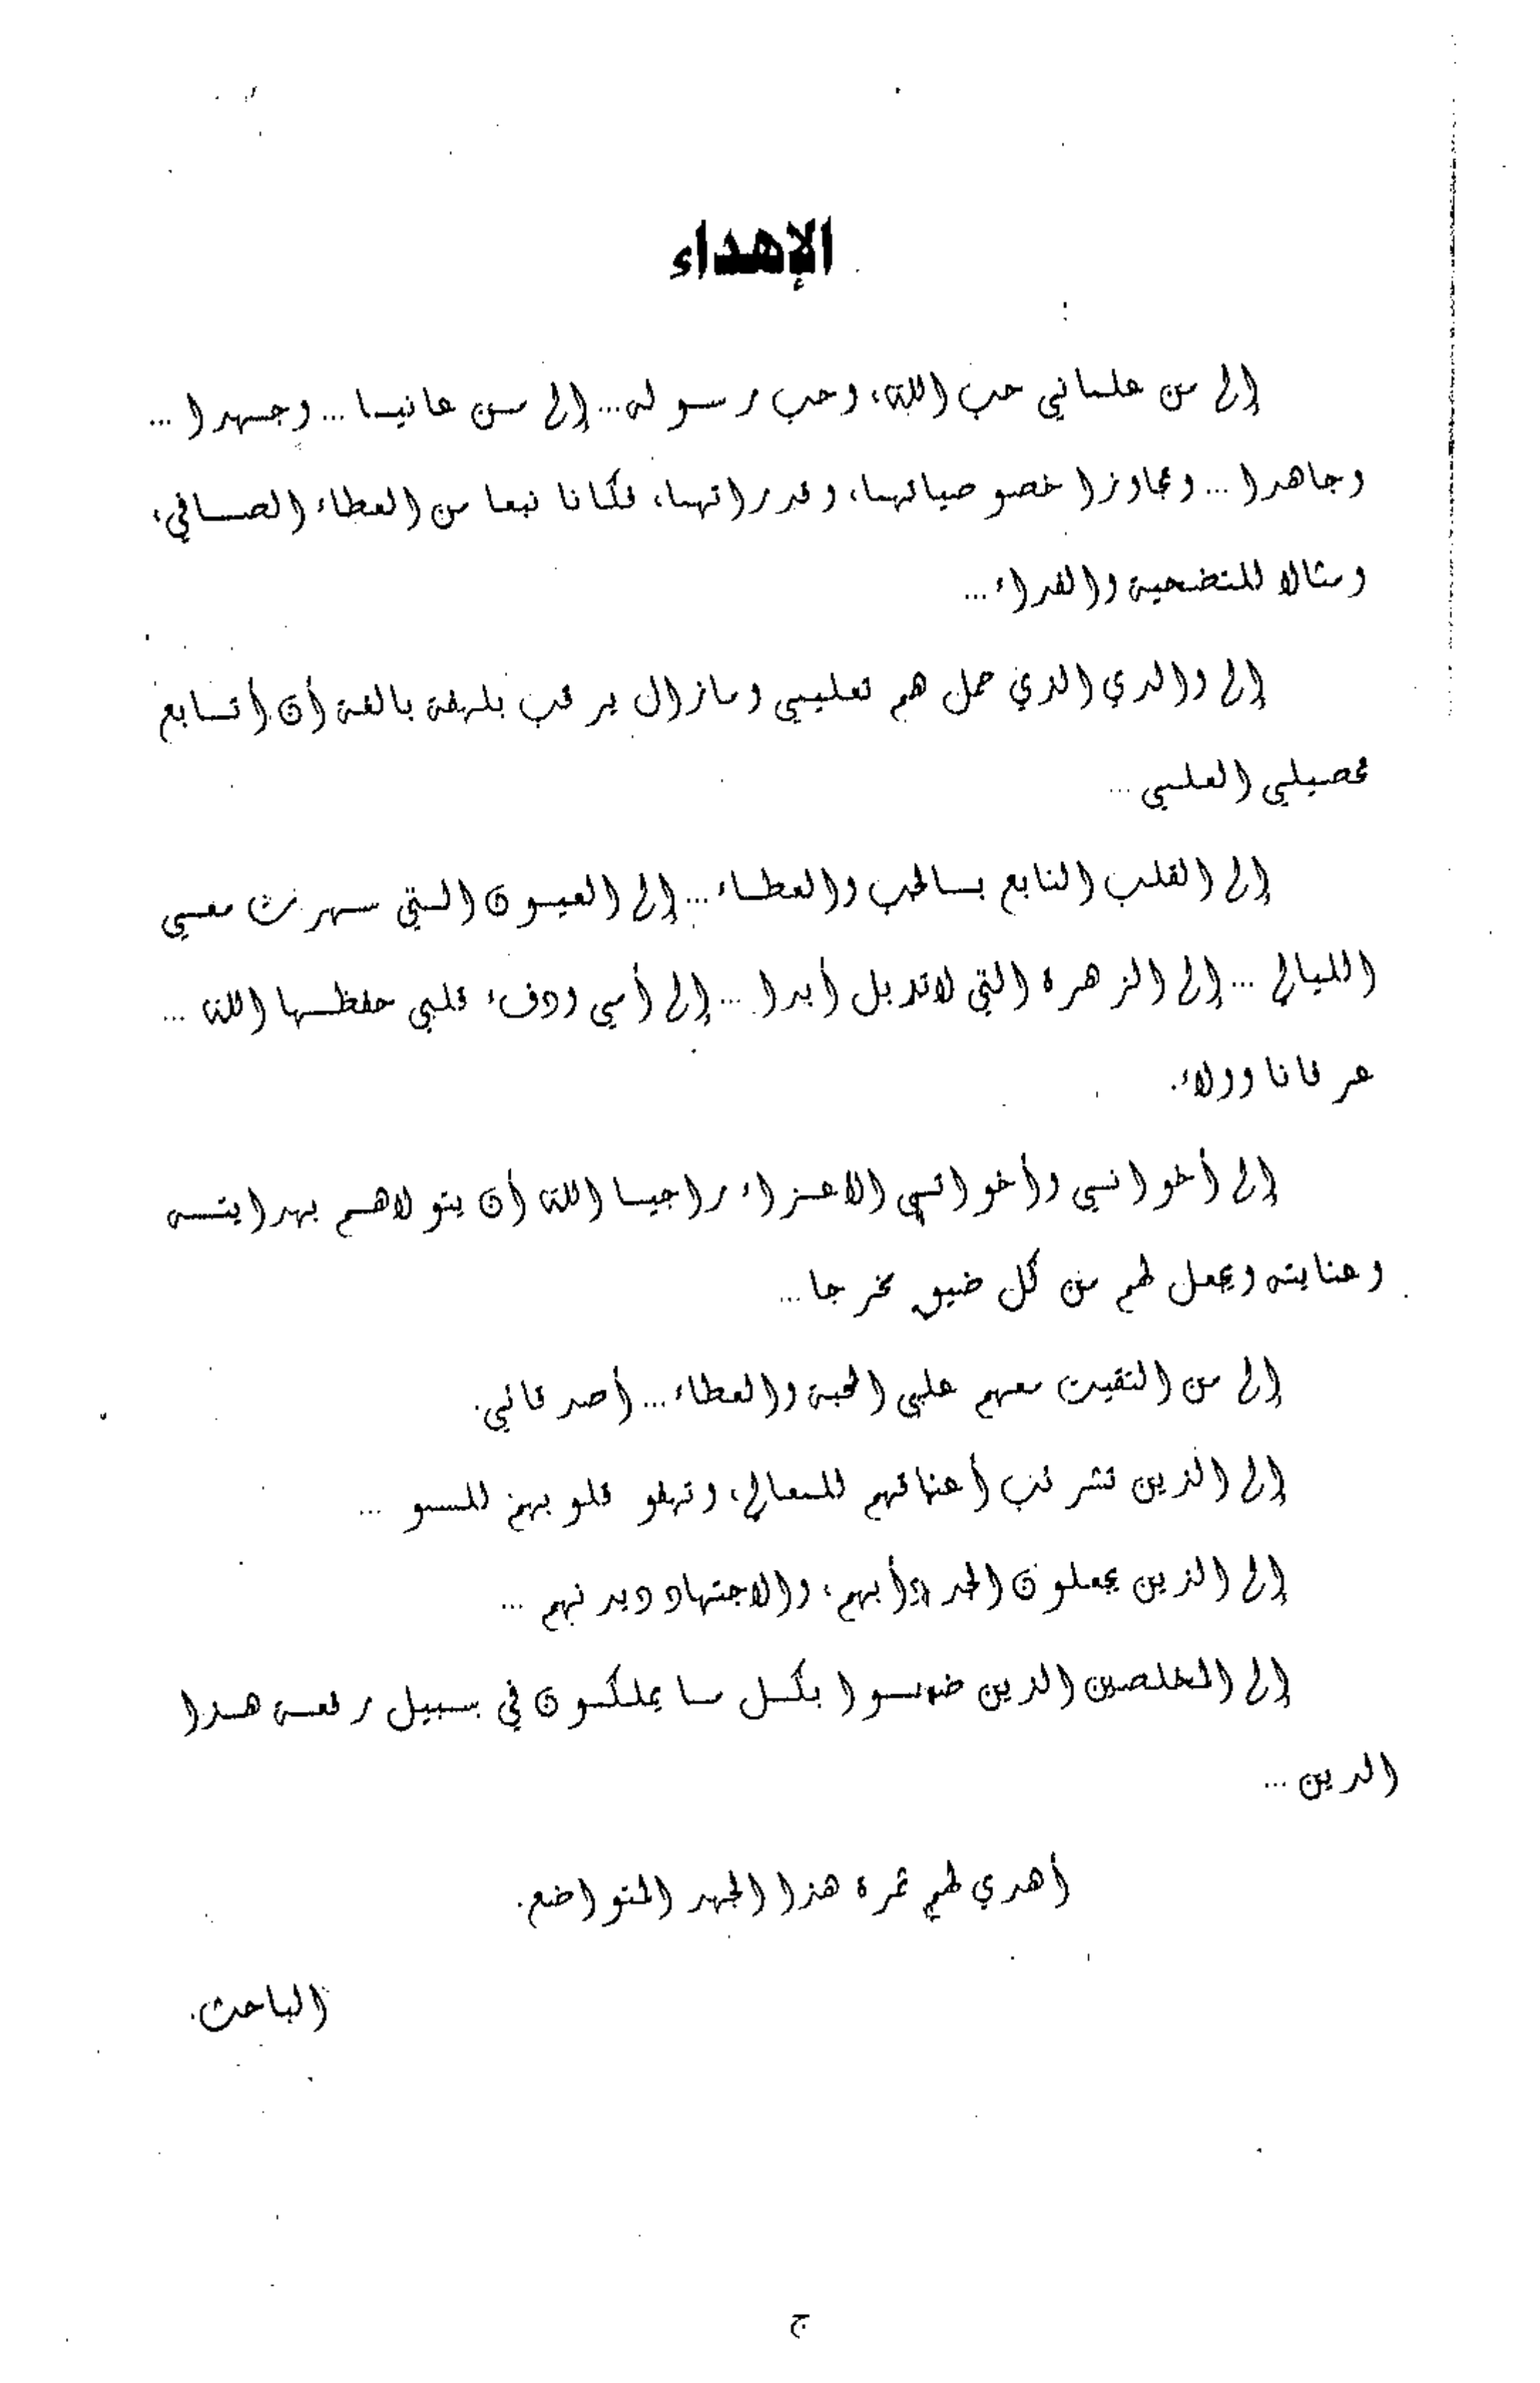 الإهداء
إلى من علماني حب الله، وحب رسوله... إلى من عانيا... وجهدا ...
وجاهدا ... وتجاوزا خصوصياتهما، وقدراتهما، فكانا نبعا من العطاء الصافي،
ومثالا للتضحية والفداء...
إلى والدي الذي حمل هم تعليمي ومازال يرقب بلهفة بالغة أن أتابع
تحصيلي العلمي ...
إلى القلب النابع بالحب والعطاء... إلى العيون التي سهرت معي
الليالي ... إلى الزهرة التي لاتذبل أبدا ... إلى أمي ودفء قلبي حفظها الله ...
عرفانا وولاء.
إلى أخواني وأخواتي الأعزاء راجيا الله أن يتولاهم بهدايته
وعنايته ويجعل لهم من كل ضيق مخرجا...
إلى من التقيت معهم على المحبة والعطاء... أصدقائي.
إلى الذين تشرئب أعناقهم للمعالي، وتهفو قلوبهم للسمو ...
إلى الذين يجعلون الجد دأبهم، والاجتهاد ديدنهم ...
إلى المخلصين الذين ضحوا بكل ما يملكون في سبيل رفعة هذا
الدين ...
أهدي لهم ثمرة هذا الجهد المتواضع.
الباحث.
ج